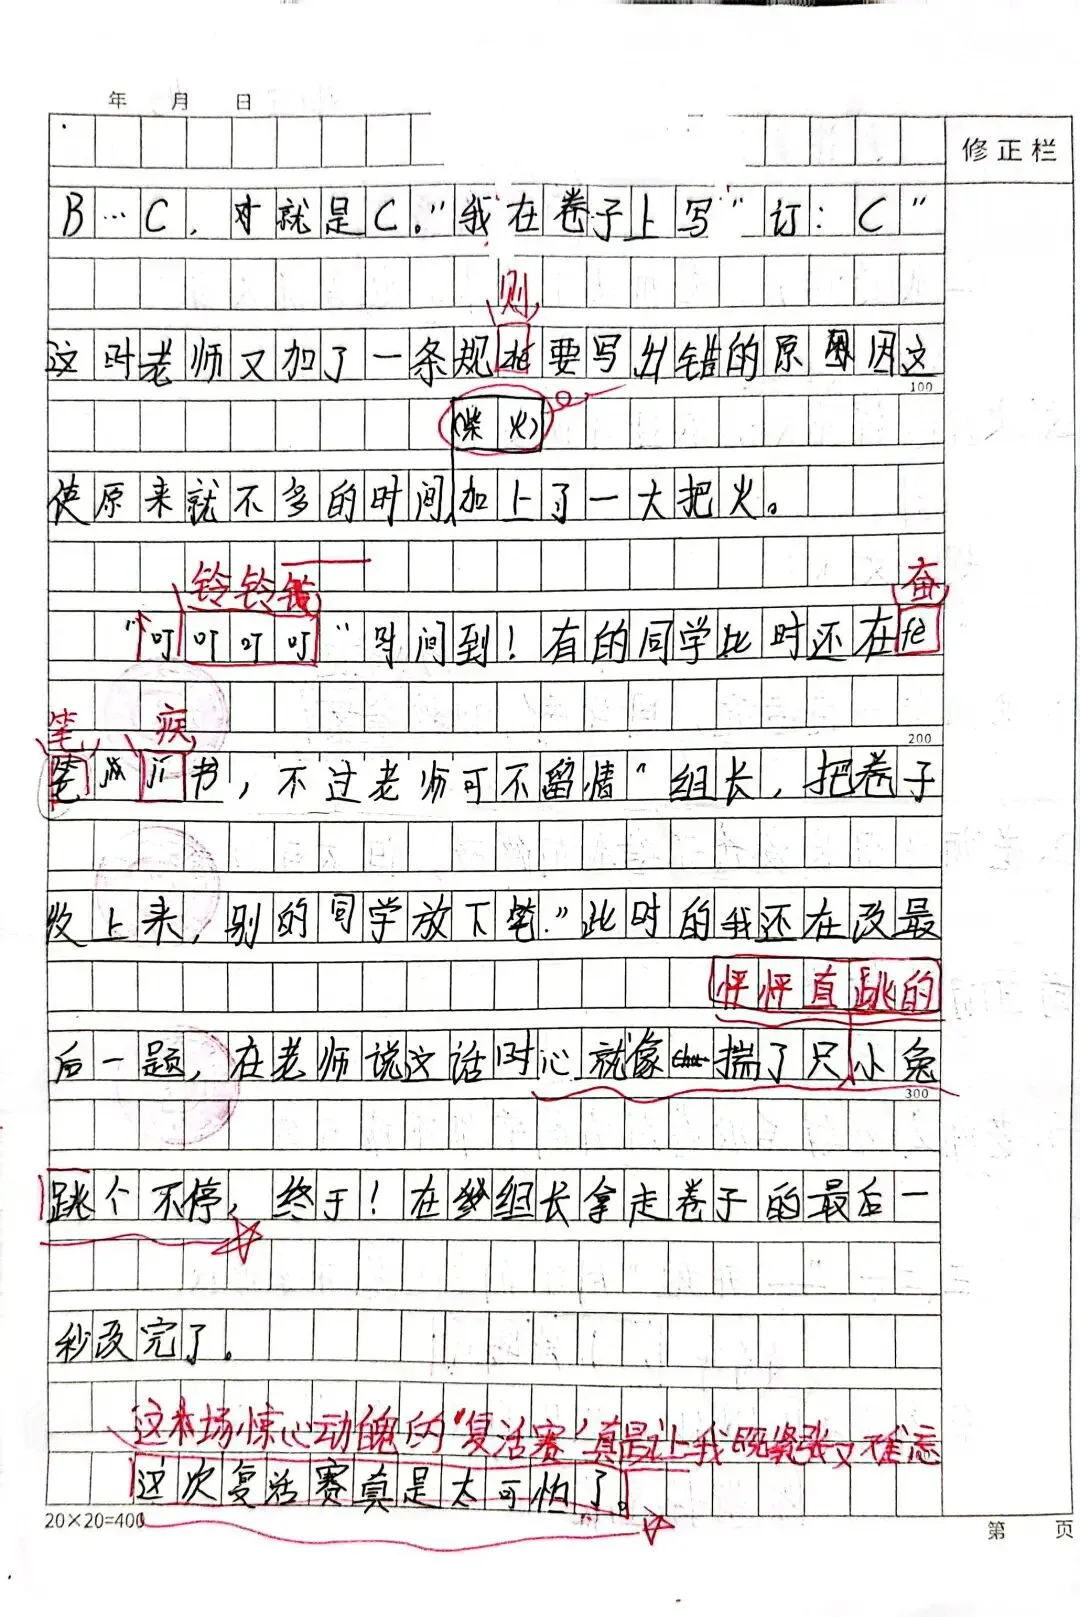 年 月 日
修正栏
B…C，对就是C。"我在卷子上写"订：C"
则
这时老师又加了一条规zé要写出错的原因因这
100
(柴火)
使原来就不多的时间加上了一大把火。
铃铃铃
"叮叮叮叮"时间到！有的同学此时还在fè
奋
200
笔 疾
笔从ji书，不过老师可不留情"组长，把卷子
收上来，别的同学放下笔."此时的我还在改最
怦怦直跳的
后一题，在老师说这话时心就像揣了只小兔
300
跳个不停，终于！在组长拿走卷子的最后一
秒改完了。
这本场惊心动魄的"复活赛"真是让我既紧张又难忘
这次复活赛真是太可怕了。
20×20=400
第 页